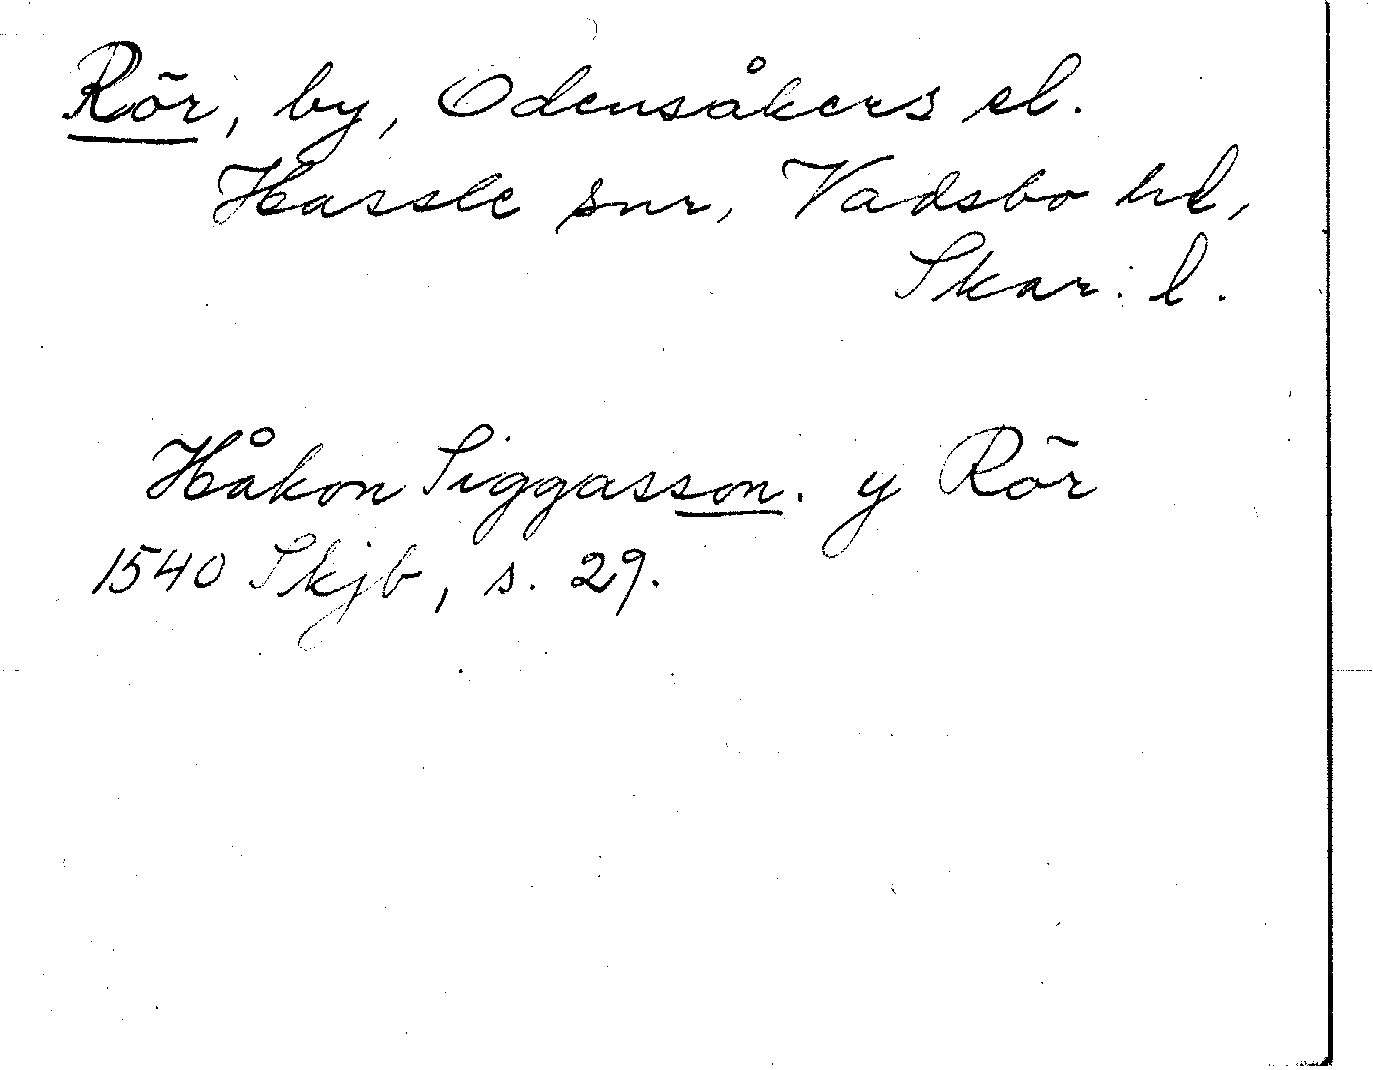 Rör, by, Odensåkers el.
Hassle snr, Vadsbo hd,
Skar. l.
Håkon Siggasson. y Rör
1540 Skjb, s. 29.